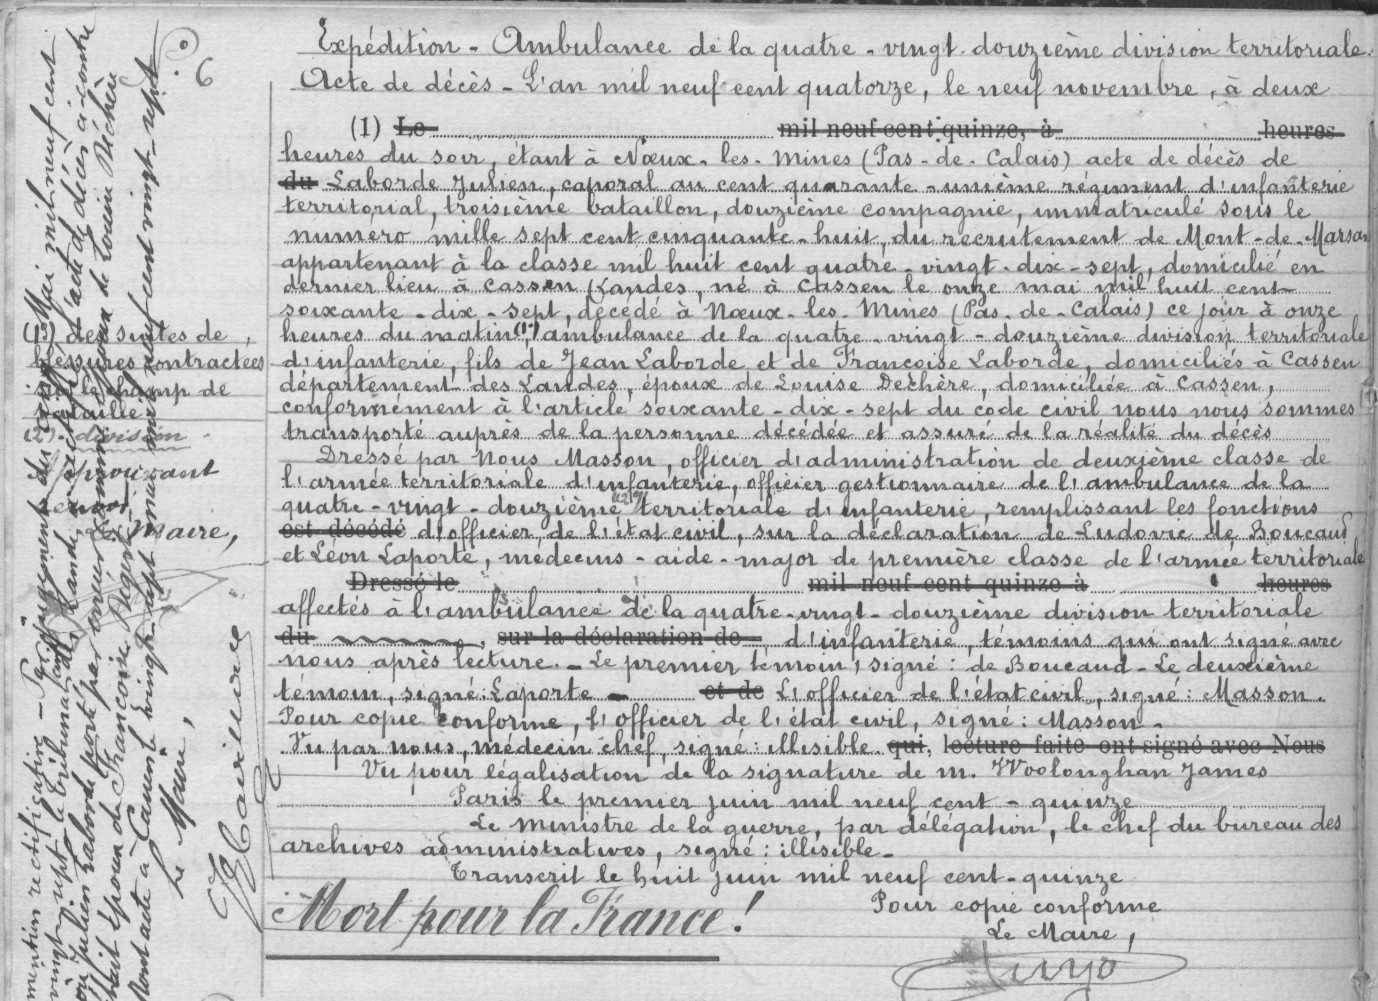 Expédition - Ambulance de la quatre - vingt - douzième division territoriale.
6
Acte de décès - L'an mil neuf cent quatorze, le neuf novembre, à deux
(1) Le mil neuf cent quinze, à heures
heures du soir, étant à Nœux - les - Mines (Pas - de - Calais) acte de décès de
du Laborde Julien, caporal au cent quarante - unième régiment d'infanterie
territorial, troisième bataillon, douzième compagnie, immatriculé sous le
numéro mille sept cent cinquante - huit, du recrutement de Mont - de - Marsan
appartenant à la classe mil huit cent quatre - vingt - dix - sept, domicilié en
dernier lieu à Cassen (Landes, né à Cassen le onze mai mil huit cent
soixante - dix - sept, décédé à Nœux - les - Mines (Pas - de - Calais) ce jour à onze
heures du matin (1°), ambulance de la quatre - vingt - douzième division territoriale
d'infanterie, fils de Jean Laborde et de Françoise Laborde, domiciliés à Cassen
département des Landes, époux de Louise Dechère, domiciliée à Cassen,
conformément à l'article soixante - dix - sept du code civil nous nous sommes
transporté auprès de la personne décédée et assuré de la réalité du décès
Dressé par Nous Masson, officier d'administration de deuxième classe de
l'armée territoriale d'infanterie, officier gestionnaire de l'ambulance de la
quatre - vingt - douzième (2°) territoriale d'infanterie, remplissant les fonctions
est décédé d'officier de l'état civil, sur la déclaration de Ludovic de Boucaud
et Léon Laporte, médecins - aide - major de première classe de l'armée territoriale
Dressé le mil neuf cent quinze à heures
affectés à l'ambulance de la quatre - vingt - douzième division territoriale
du , sur la déclaration de d'infanterie, témoins qui ont signé avec
nous après lecture. - Le premier témoin, signé : de Boucaud - Le deuxième
témoin, signé : Laporte - et de L'officier de l'état civil, signé : Masson.
Pour copie conforme, l'officier de l'état civil, signé : Masson -
Vu par nous, médecin chef, signé : illisible. qui, lecture faite ont signé avec Nous
Vu pour légalisation de la signature de M. Woolonghan James
Paris le premier juin mil neuf cent - quinze
Le ministre de la guerre, par délégation, le chef du bureau des
archives administratives, signé : illisible -
Transcrit le huit juin mil neuf cent - quinze
Pour copie conforme
Le Maire,
Mort pour la France !
(1°) des suites de
blessures contractées
champ de
bataille
(2°) - division -
approuvant
renvoi
Le Maire,
mention rectificative - Par jugement du cinq Mai mil neuf cent
vingt - sept le Tribunal de
Julien Laborde porté par erreur comme époux de Louise Déchère
était époux de Françoise
Dont acte à Cassen le vingt - sept mai mil neuf cent vingt - sept
Le Maire,